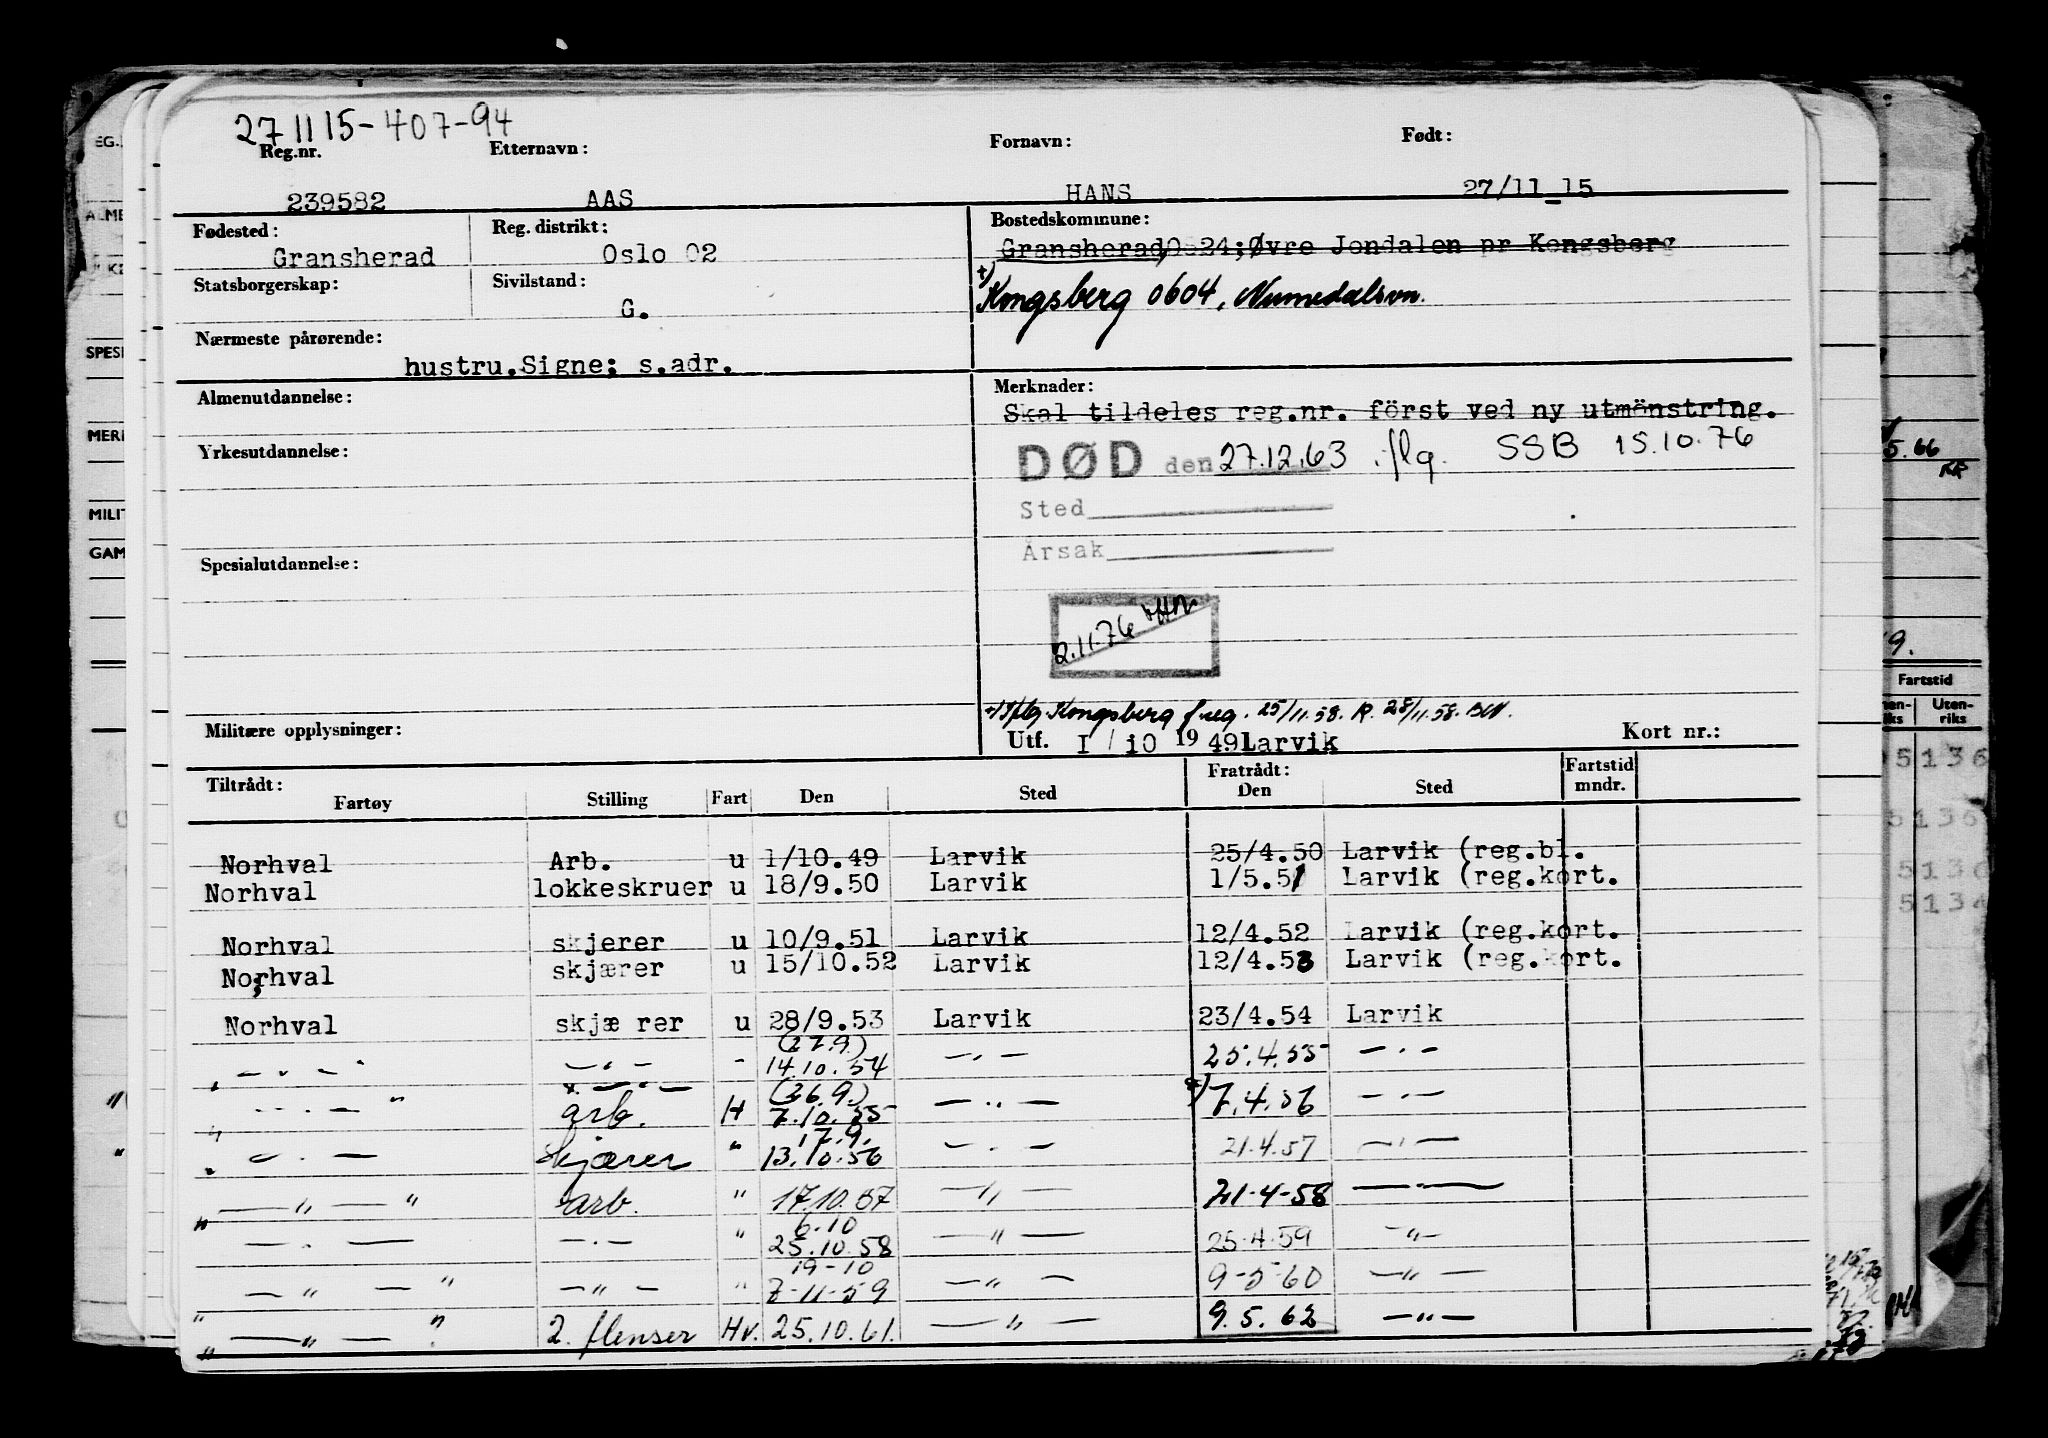 27 11 15-407-94
Reg.nr. Etternavn: Fornavn: Født:
239582 AAS HANS 27/11_15
Fødested: Reg. distrikt: Bostedskommune:
Gransherad Oslo 02 Gransherad,0824;Øvre Jondalen pr Kongsberg
Statsborgerskap: Sivilstand: +) Kongsberg 0604, Numedalsvn.
G.
Nærmeste pårørende:
hustru.Signe; s.adr.
Almenutdannelse: Merknader:
Skal tildeles reg.nr. först ved ny utmönstring.
Yrkesutdannelse: DØD den 27.12.63 iflg. SSB 15.10.76
Sted
Årsak
Spesialutdannelse:
2.11.76
+) Iflg. Kongsberg f.reg. 25/11.58. R. 28/11.58.
Militære opplysninger: Utf. I / 10 1949 Larvik Kort nr.:
Tiltrådt: Fratrådt: Fartstid
Fartøy Stilling Fart Den Sted Den Sted mndr.
Norhval Arb. u 1/10.49 Larvik 25/4.50 Larvik (reg.bl.
Norhval lokkeskruer u 18/9.50 Larvik 1/5.51 Larvik (reg.kort.
Norhval skjerer u 10/9.51 Larvik 12/4.52 Larvik (reg.kort.
Norhval skjærer u 15/10.52 Larvik 12/4.53 Larvik (reg.kort.
Norhval skjæ rer u 28/9.53 Larvik 23/4.54 Larvik
(27.9.)
— " — — " — - 14.10.54 — " — 25.4.55 — " —
x. — " — (26.9.)
— " — arb. H 7.10.55 — " — x) 7.4.56 — " —
17.9.
— " — Skjærer " 13.10.56 — " — 21.4.57 — " —
— " — arb. " 17.10.57 — " — 21-4-58 — " —
6.10
— " — — " — " 25.10.58 — " — 25.4.59 — " —
19-10
— " — — " — " 7-11-59 — " — 9-5-60 — " —
— " — 2. flenser Hv. 25.10.61. — " — 9.5.62 — " —
REG.
ALME
SPESI
MERK
MILIT
GAM
5.66
KR
9.
Fartstid
Innen- Uten-
riks riks
5136
5136
5136
5134